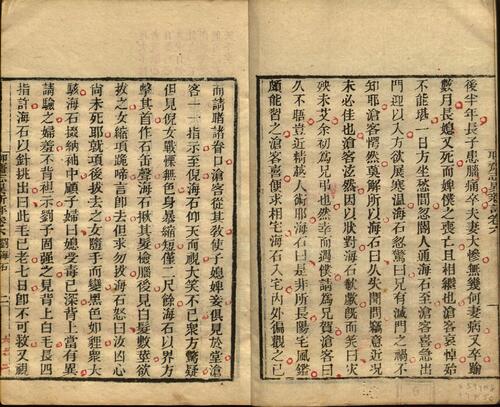 後半年長子患腦痛卒夫妻大慘無幾何妻病又卒踰
數月長媳又死而婢僕之喪亡且相繼也滄客哀悼殆
不能堪一日方坐愁間忽閽人通海石至滄客喜急出
門迎以入方欲展寒温海石忽驚曰兄有滅門之禍不
知耶滄客愕然莫解所以海石曰久失聞問竊意近況
未必佳也滄客泫然因以狀對海石欷歔既而笑曰災
殃未艾余初為兄弔也然幸而遇僕請為兄賀滄客曰
久不晤豈近精越人術耶海石曰是非所長陽宅風鑑
頗能習之滄客喜便求相宅海石入宅內外徧觀之已
而請睹諸眷口滄客從其教使子媳婢妾俱見於堂滄
客一一指示至倪海石仰天而視大笑不已眾方驚疑
但見倪女戰慄無色身暴縮短僅二尺餘海石以界方
擊其首作石缶聲海石揪其髮檢腦後見白髮數莖欲
拔之女縮項跪啼言即去但求勿拔海石怒曰汝凶心
尚未死耶就項後拔去之女隨手而變黑色如貍眾大
駭海石掇納袖中顧子婦曰媳受毒已深背上當有異
請驗之婦羞不肯袒示劉子固強之見背上白毛長四
指許海石以針挑出曰此毛已老七日即不可救又視
劉海石
二